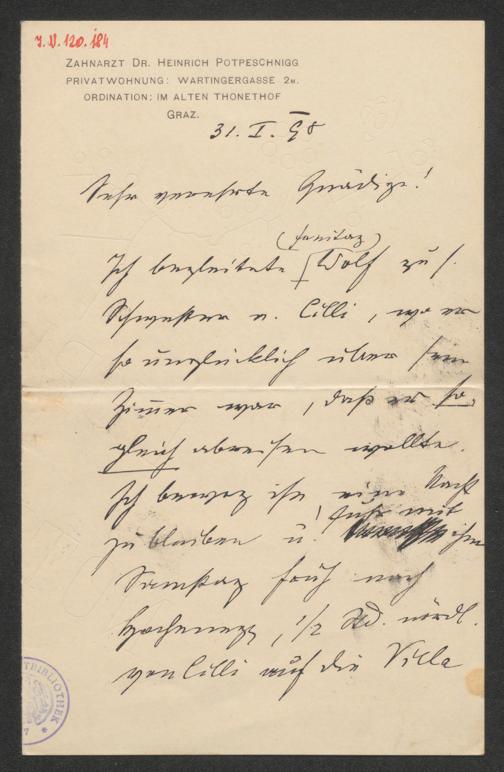 J.N. 120.184
ZAHNARZT DR. HEINRICH POTPESCHNIGG
PRIVATWOHNUNG: WARTINGERGASSE 2
ORDINATION: IM ALTEN THONETHOF
GRAZ.
31. I. 98
Sehr verehrte Gnädige!
(Freitag)
Ich begleitete Wolf zu s.
Schwester n. Cilli, wo er
so unglücklich über sein
Zimmer war, daß er so-
gleich abreisen wollte.
Ich bewog ihn eine Nacht
zu bleiben u. fuhr mit ihm
Samstag früh nach
Hochenegg, 1/2 Std. nördl.
von Cilli auf die Villa
BIBLIOTHEK